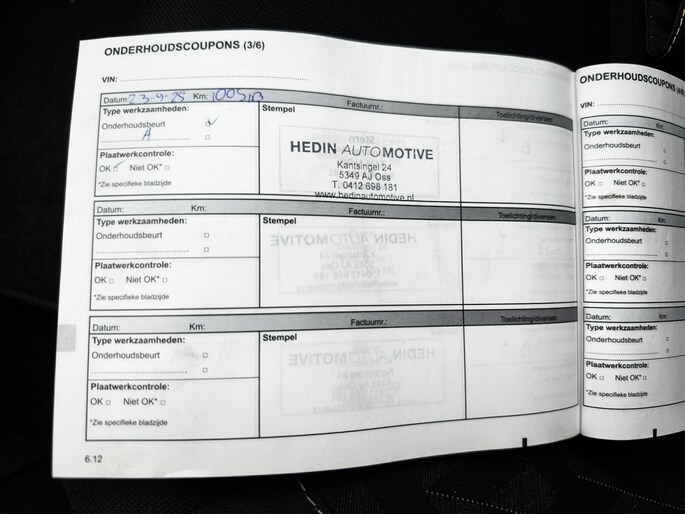 ONDERHOUDSCOUPONS (3/6)
VIN:
Datum: 23-9-25 Km: Factuurnr.: Toelichting/diversen
Type werkzaamheden: Stempel
Onderhoudsbeurt
A
Plaatwerkcontrole:
OK Niet OK*
*Zie specifieke bladzijde
HEDIN AUTOMOTIVE
Kantsingel 24
5349 AJ Oss
T. 0412 698 181
www.hedinautomotive.nl
Datum: Km: Factuurnr.: Toelichting/diversen
Type werkzaamheden: Stempel
Onderhoudsbeurt
Plaatwerkcontrole:
OK Niet OK*
*Zie specifieke bladzijde
Datum: Km: Factuurnr.: Toelichting/diversen
Type werkzaamheden: Stempel
Onderhoudsbeurt
Plaatwerkcontrole:
OK Niet OK*
*Zie specifieke bladzijde
6.12
ONDERHOUDSCOUPONS (4/6)
VIN:
Datum: Km:
Type werkzaamheden:
Onderhoudsbeurt
Plaatwerkcontrole:
OK Niet OK*
*Zie specifieke bladzijde
Datum: Km:
Type werkzaamheden:
Onderhoudsbeurt
Plaatwerkcontrole:
OK Niet OK*
*Zie specifieke bladzijde
Datum: Km:
Type werkzaamheden:
Onderhoudsbeurt
Plaatwerkcontrole:
OK Niet OK*
*Zie specifieke bladzijde